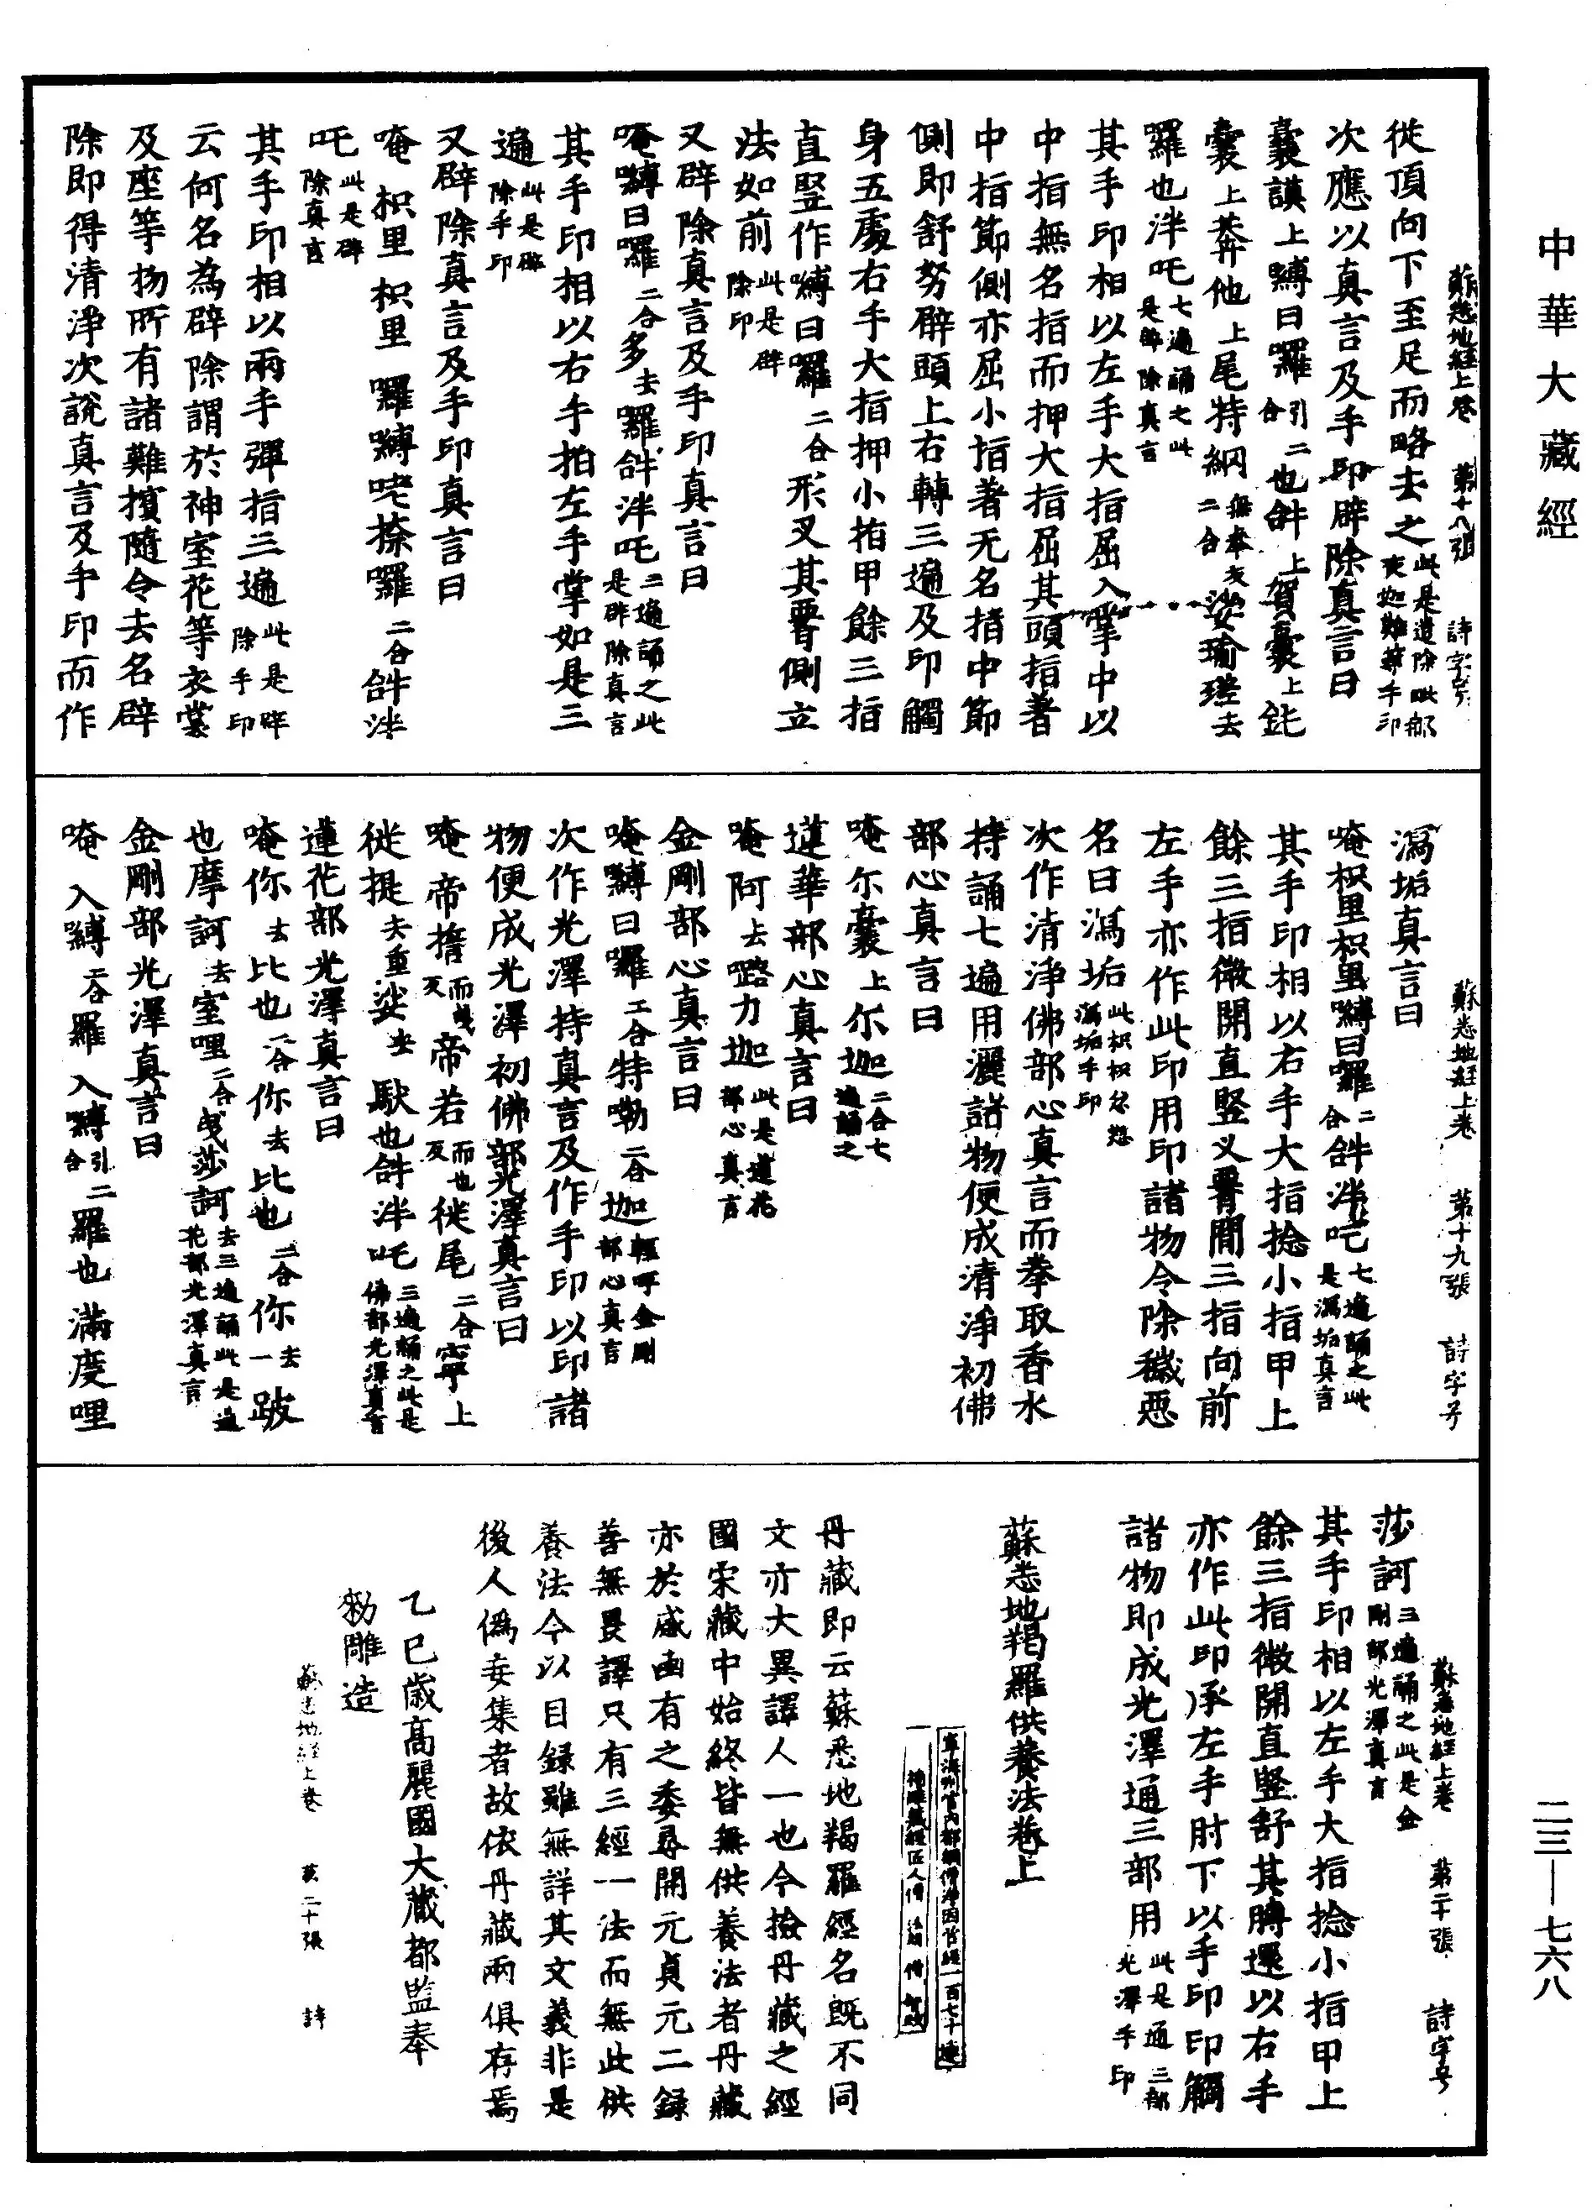 中華大藏經
蘇悉地經上卷 第十八張 詩字号
從頂向下至足而略去之此是遣除毗那夜迦難等手印
次應以真言及手印辟除真言曰
曩謨上嚩日囉引二合也𤙖上賀曩上鈋
曩上莾他上尾特綱二合娑瑜瑳去
囉也泮吒七遍誦之此是辟除真言
其手印相以左手大指屈入掌中以
中指無名指而押大指屈其頭指著
中指節側亦屈小指著无名指中節
側即舒努臂頭上右轉三遍及印觸
身五處右手大指押小指甲餘三指
直竪作嚩日囉二合形叉其署側立
法如前此是辟除印
又辟除真言及手印真言曰
唵嚩日囉二合多去囉𤙖泮吒三遍誦之此是辟除真言
其手印相以右手拍左手掌如是三
遍此是辟除手印
又辟除真言及手印真言曰
唵 枳里 枳里 囉嚩咾捺囉二合𤙖泮
吒此是辟除真言
其手印相以兩手彈指三遍此是辟除手印
云何名為辟除謂於神室花等衣裳
及座等物所有諸難擯隨令去名辟
除即得清淨次說真言及手印而作
蘇悉地經上卷 第十九張 詩字号
瀉垢真言曰
唵枳里枳里嚩日囉二合𤙖泮吒七遍誦之此是瀉垢真言
其手印相以右手大指捻小指甲上
餘三指微開直竪叉署間三指向前
左手亦作此印用印諸物令除穢惡
名曰瀉垢此枳枳忿怒瀉垢手印
次作清淨佛部心真言而拳取香水
持誦七遍用灑諸物便成清淨初佛
部心真言曰
唵尔曩上尔迦二合七遍誦之
蓮華部心真言曰
唵阿去嚕力迦此是蓮花部心真言
金剛部心真言曰
唵嚩日囉二合特嘞二合迦輕呼金剛部心真言
次作光澤持真言及作手印以印諸
物便成光澤初佛部光澤真言曰
唵帝擔而哉反帝若而也反徙尾二合寧上
徙提去重娑 馱也𤙖泮吒三遍誦之此是佛部光澤真言
蓮花部光澤真言曰
唵你去比也二合你去比也二合你去一跛
也摩訶去室哩二合曳莎訶去三遍誦此是蓮花部光澤真言
金剛部光澤真言曰
唵 入嚩二合羅 入嚩引二合羅也 滿度哩
蘇悉地經上卷 第二十張 詩字号
莎訶三遍誦之此是金剛部光澤真言
其手印相以左手大指捻小指甲上
餘三指微開直竪舒其膊還以右手
亦作此印承左手肘下以手印印觸
諸物即成光澤通三部用此是通三部光澤手印
蘇悉地羯羅供養法卷上
丹藏即云蘇悉地羯羅經名既不同
文亦大異譯人一也今撿丹藏之經
國宋藏中始終皆無供養法者丹藏
亦於咸函有之委尋開元貞元二錄
善無畏譯只有三經一法而無此供
養法今以目錄雖無詳其文義非是
後人偽妄集者故依丹藏兩俱存焉
乙巳歲高麗國大藏都監奉
勑雕造
蘇悉地經上卷 二十張 詩
二三—七六八